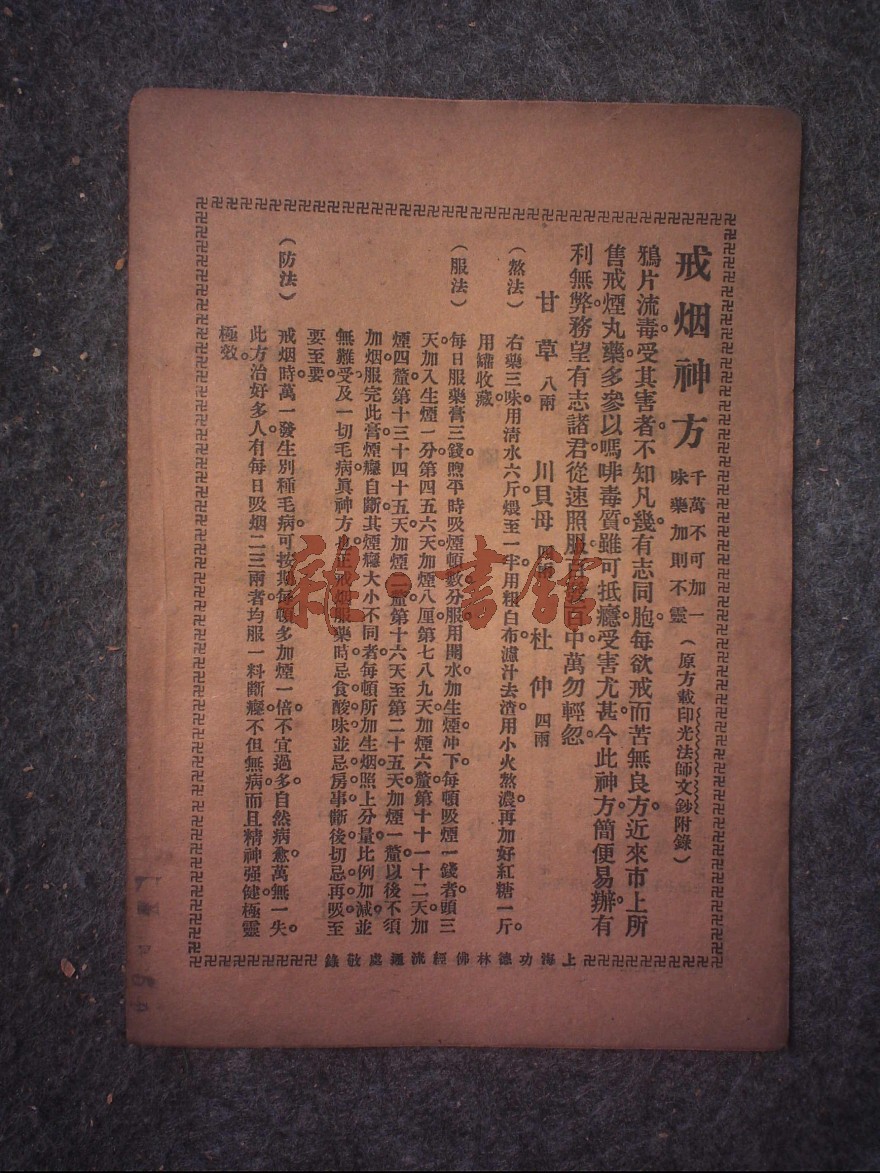 戒烟神方
千萬不可加一
味藥加則不靈
(原方載印光法師文鈔附錄)
鴉片流毒。受其害者。不知凡幾。有志同胞。每欲戒而苦無良方。近來市上所
售戒煙丸藥。多參以嗎啡毒質。雖可抵癮。受害尤甚。今此神方。簡便易辦。有
利無弊。務望有志諸君。從速照服。百中。萬勿輕忽。
甘草 八兩 川貝母 四兩 杜仲 四兩
(熬法)右藥三味。用清水六斤。煨至一半。用粗白布濾汁去渣。用小火熬濃。再加好紅糖一斤。
用罐收藏。
(服法)每日服藥膏三錢。煦平時吸煙頓數分服。用開水加生煙冲下。每頓吸煙一錢者。頭三
天加入生煙一分。第四五六天加煙八厘。第七八九天加煙六釐。第十十一十二天加
煙四釐。第十三十四十五天加煙二釐。第十六天至第二十五天加煙一釐。以後不須
加烟。服完此膏。煙癮自斷。其煙癮大小不同者。每頓所加生烟。照上分量比例加減。並
無難受及一切毛病。眞神方也。正戒烟服藥時。忌食酸味。並忌房事。斷後切忌再吸。至
要至要
(防法)戒烟時。萬一發生別種毛病。可按期每頓多加煙一倍。不宜過多。自然病愈。萬無一失。
此方治好多人。有每日吸烟二三兩者。均服一料斷癮。不但無病。而且精神强健。極靈
極效。
上海功德林佛經流通處敬錄
雜·書館